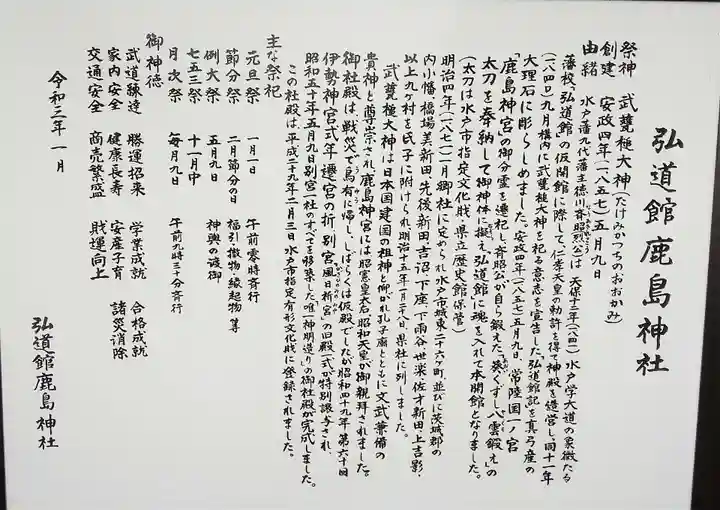 弘道館鹿島神社
祭神 武甕槌大神(たけみかつちのおおかみ)
創建 安政四年(一八五七)五月九日
由緒 水戸藩九代藩主徳川斉昭(烈公)は 天保十二年(一八四一)水戸学大道の象徴たる
藩校、「弘道館」の仮開館に際して、仁孝天皇の勅許を得て神殿を造営し、同十一年
(一八四〇)九月構内に武甕槌大神を祀る意志を宣告した、弘道館記を真弓産の
大理石に彫らしめました。安政四年(一八五七)五月九日、常陸国一ノ宮
「鹿島神宮」の御分霊を遷祀し、斉昭公が自ら鍛えた、葵くずし八雲鍛えの
太刀を奉納して御神体に擬え、弘道館に魂を入れて本開館となりました。
(太刀は水戸市指定文化財、県立歴史館保管)
明治四年(一八七一)一月郷社に定められ水戸市城東二十六ヶ町並びに茨城郡の
内小幡、橋場美新田先後新田、吉沼、下座、下雨谷、世楽、佐才新田、上吉影、
以上九ヶ村を氏子に附けられ、明治十五年一月二十八日、県社に列しました。
武甕槌大神は日本国建国の祖神と仰がれ孔子廟とともに文武兼備の
貴神と尊崇され、鹿島神宮には昭憲皇太后、昭和天皇が御親拝されました。
御社殿は、戦災で烏有に帰し、しばらくは仮殿でしたが昭和四十九年第六十回
伊勢神宮式年遷宮の折、別宮「風日祈宮」の旧殿一式が特別譲与され、
昭和五十年五月九日別宮一社のすべてを移築した唯一神明造りの御社殿が完成しました。
この社殿は、平成二十九年二月三日水戸市指定有形文化財に登録されました。
主な祭祀
元旦祭 一月一日 午前零時斉行
節分祭 二月節分の日 福引、撒物・縁起物等
例大祭 五月九日 神輿の渡御
七五三祭 十一月中
月次祭 毎月九日 午前九時三十分斉行
御神徳
武道練達 勝運招来 学業成就 合格成就
家内安全 健康長寿 安産子育 諸災消除
交通安全 商売繁盛 財運向上
令和三年一月
弘道館鹿島神社